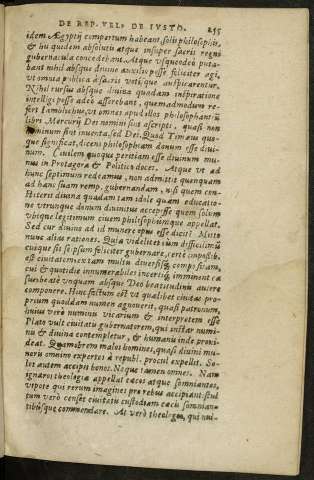 DE REP. VEL DE IVSTO. 255
idem Ægyptij compertum habeant, solis philosophis,
& hu quidem absolutis atque insuper sacris regni
gubernacula concedebant. Atque vsqueadeò puta-
bant nihil absque diuino auxilio posse feliciter agi,
vt omnia publica à sacris vatibus auspicarentur.
Nihil rursus absque diuina quadam inspiratione
intelligi posse adeò asserebant, quemadmodum re-
fert Iamblichus, vt omnes apud illos philosophantium
libri Mercurij Dei nomini sint ascripti, quasi non
hominum sint inuenta, sed Dei. Quod Timæus quo-
que significat, dicens philosophiam donum esse diui-
num. Ciuilem quoque peritiam esse diuinum mu-
nus in Protagora & Politico docet. Atque vt ad
hunc septimum redeamus, non admittit quenquam
ad hanc suam remp. gubernandam, nisi quem con-
stiterit diuina quadam tam indole quàm educatio-
ne vtrunque donum diuinitus accepisse quem solum
vbique legitimum ciuem philosophumque appellat.
Sed cur diuino ad id munere opus esse dicit? Mitto
nunc alias rationes. Quia videlicet cùm difficillimum
cuique sit seipsum feliciter gubernare, certè impossibile
est ciuitatem ex tam multis diuersisque compositam,
cui & quotidie innumerabiles incertique imminent casus,
sine beato vnquam absque Deo beatitudini auere
componere. Hinc factum est vt quælibet ciuitas pro-
prium quoddam numen agnouerit, quasi patronum,
huius verò numinis vicarium & interpretem esse
Plato vult ciuitatis gubernatorem, qui instar numi-
nis & diuina contempletur, & humanis inde proui-
deat. Quamobrem malos homines, quasi diuini mu-
neris omnino expertes à republ. procul expellit. So-
los autem accipit bonos. Neque tamen omnes. Nam
ignaros theologiæ appellat cæcos atque somniantes,
vtpote qui rerum imagines pro rebus accipiant: stul-
tum verò censet ciuitatis custodiam cæcis somnian-
tibúsque commendare. At verò theologos, qui nui-